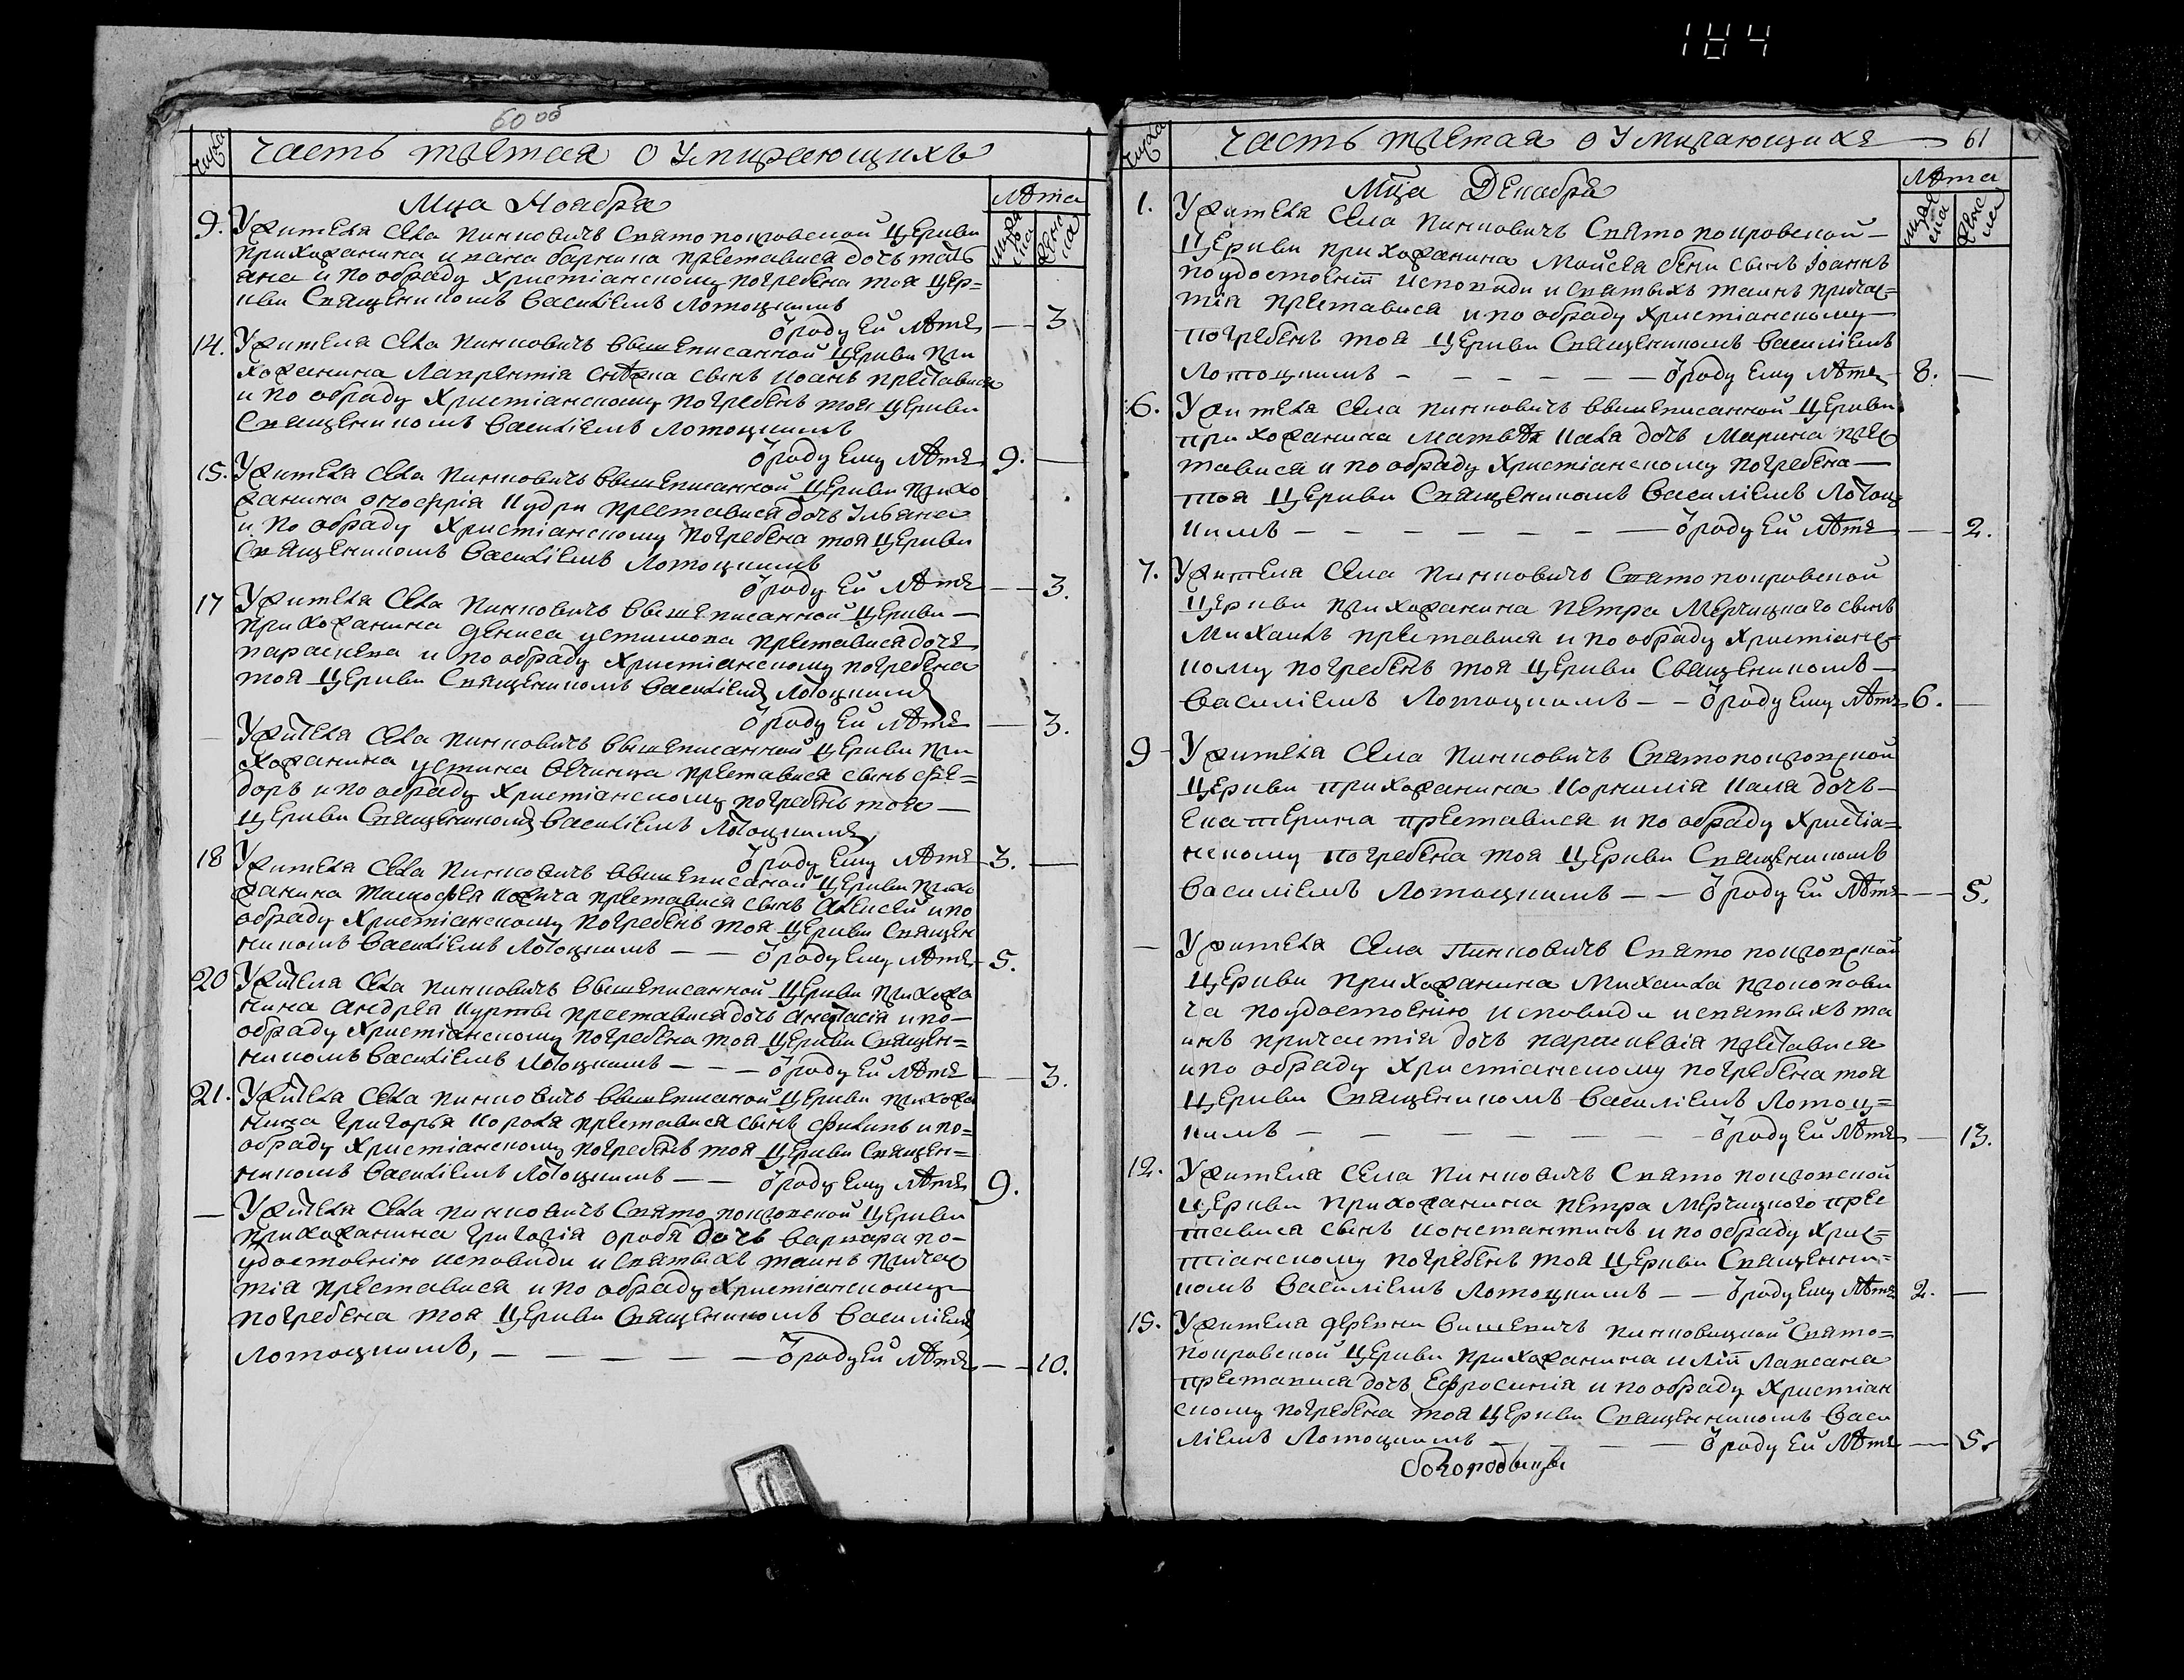 184
60 об
Числа
Часть третая о Умирающихъ
Лѣта
мужеска
женска
Мца Ноября
9. У жителя села Пинковичъ Святопокровской церкви
прихожанина Ивана преставися дочь Тать
яна и по обряду христіанскому погребена тоя цер=
кви священикомъ Василіемъ Лотоцкимъ
ѿ роду ей лѣтъ — 3
14. У жителя села Пинковичъ вышеписанной церкви при
хожанина Лаврентія сынъ Иоанъ преставися
и по обряду христіанскому погребенъ тоя церкви
священикомъ Василіемъ Лотоцкимъ
ѿ роду ему лѣтъ 9. —
15. У жителя села Пинковичъ вышеписанной церкви прихо
жанина Оносфрія Кудри преставися дочь Ульяна
и по обряду христіанскому погребена тоя церкви
священикомъ Василіемъ Лотоцкимъ
ѿ роду ей лѣтъ — 3.
17 У жителя села Пинковичъ вышеписанной церкви —
прихожанина Дениса Устимова преставися дочь
Параскева и по обряду христіанскому погребена
тоя церкви священикомъ Василіемъ Лотоцкимъ
ѿ роду ей лѣтъ — 3.
— У жителя села Пинковичъ вышеписанной церкви при
хожанина Устина преставися сынъ Фе=
доръ и по обряду христіанскому погребенъ тоя —
церкви священикомъ Василіемъ Лотоцкимъ
ѿ роду ему лѣтъ 3. —
18 У жителя села Пинковичъ вышеписаной церкви прихо
жанина Тимофея преставися сынъ Алексей и по
обряду христіанскому погребенъ тоя церкви священ
никомъ Василіемъ Лотоцкимъ — — ѿ роду ему лѣтъ 5.
20 У жителя села Пинковичъ вышеписанной церкви прихожа
нина Андрея преставися дочь Анастасія и по —
обряду христіанскому погребена тоя церкви священ=
никомъ Василіемъ Лотоцкимъ — — — ѿ роду ей лѣтъ — 3.
21. У жителя села Пинковичъ вышеписаной церкви прихожа
нина Григорья Короля преставися сынъ Филипъ и по=
обряду христіанскому погребенъ тоя церкви священ=
никомъ Василіемъ Лотоцкимъ — — ѿ роду ему лѣтъ 9.
— У жителя села Пинковичъ Святопокровской церкви
прихожанина Григорія дочь Варвара по-
удостоенію исповиди и святыхъ таинъ причас
тія преставися и по обряду христіанскому
погребена тоя церкви священикомъ Василіемъ
Лотоцкимъ, — — — — — ѿ роду ей лѣтъ — — 10.
Числа
Часть третая о Умирающихъ — 61
Лѣта
мужеска
женска
Мца Декабря
1. У жителя села Пинковичъ Святопокровской —
церкви прихожанина Мойсея сынъ Іоаннъ
по удостоеніи исповиди и святыхъ таинъ причас=
тія преставися и по обряду христіанскому —
погребенъ тоя церкви священикомъ Василіемъ
Лотоцкимъ — — — — — — ѿ роду ему лѣтъ 8. —
6. У жителя села Пинковичъ вышеписанной церкви
прихожанина Матвѣя дочь Марина прес
тавися и по обряду христіанскому погребена —
тоя церкви священикомъ Василіемъ Лотоц
кимъ — — — — — — — ѿ роду ей лѣтъ — 2.
7. У жителя села Пинковичъ Святопокровской
церкви прихожанина Петра Мерчицкаго сынъ
Михаилъ преставися и по обряду христіанс=
кому погребенъ тоя церкви священикомъ —
Василіемъ Лотоцкимъ — — ѿ роду ему лѣтъ 6. —
9 - У жителя села Пинковичъ Святопокровской
церкви прихожанина Корнилія дочь —
Екатерина преставися и по обряду христіа=
нскому погребена тоя церкви священикомъ
Василіемъ Лотоцкимъ — — ѿ роду ей лѣтъ — 5.
— У жителя села Пинковичъ Святопокровской
церкви прихожанина Михаила Прокопови
ча по удостоенію исповиди и святыхъ та
инъ причастія дочь Параскевія преставися
и по обряду христіанскому погребена тоя
церкви священикомъ Василіемъ Лотоц=
кимъ — — — — — — — ѿ роду ей лѣтъ — 13.
12. У жителя села Пинковичъ Святопокровской
церкви прихожанина Петра Мерчицкого прес
тависа сынъ Константинъ и по обряду хрис=
тіанскому погребенъ тоя церкви священни=
комъ Василіемъ Лотоцкимъ — — ѿ роду ему лѣтъ 2. —
15. У жителя деревни Вишевичъ Пинковицкой Свято=
покровской церкви прихожанина
преставися дочь Ефросинія и по обряду христіан
скому погребена тоя церкви священникомъ Васи
ліемъ Лотоцкимъ — — — — ѿ роду ей лѣтъ — 5.